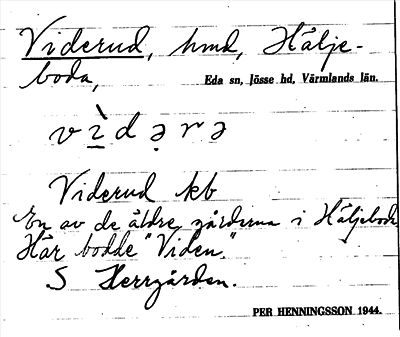 Viderud, hmd, Hälje-
boda,
Eda sn, Jösse hd, Värmlands län.
v ì̠ d ə̣ r ə
Viderud kb
En av de äldre gårderna i Häljeboda
Här bodde "Viden".
S Herrgården.
PER HENNINGSSON 1944.